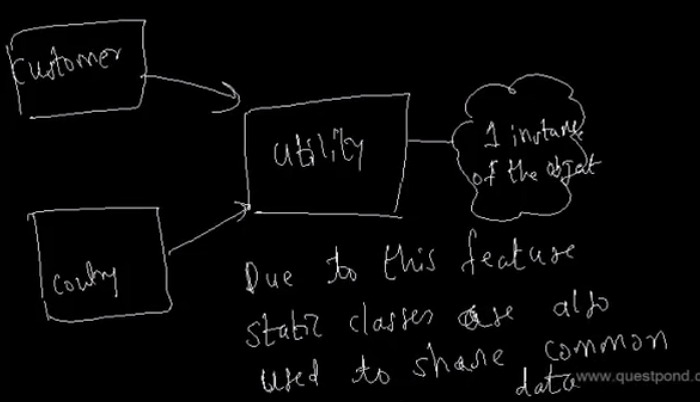 Customer
utility
1 instance
of the object
country
Due to this feature
static classes are also
used to share common
data
www.questpond.c